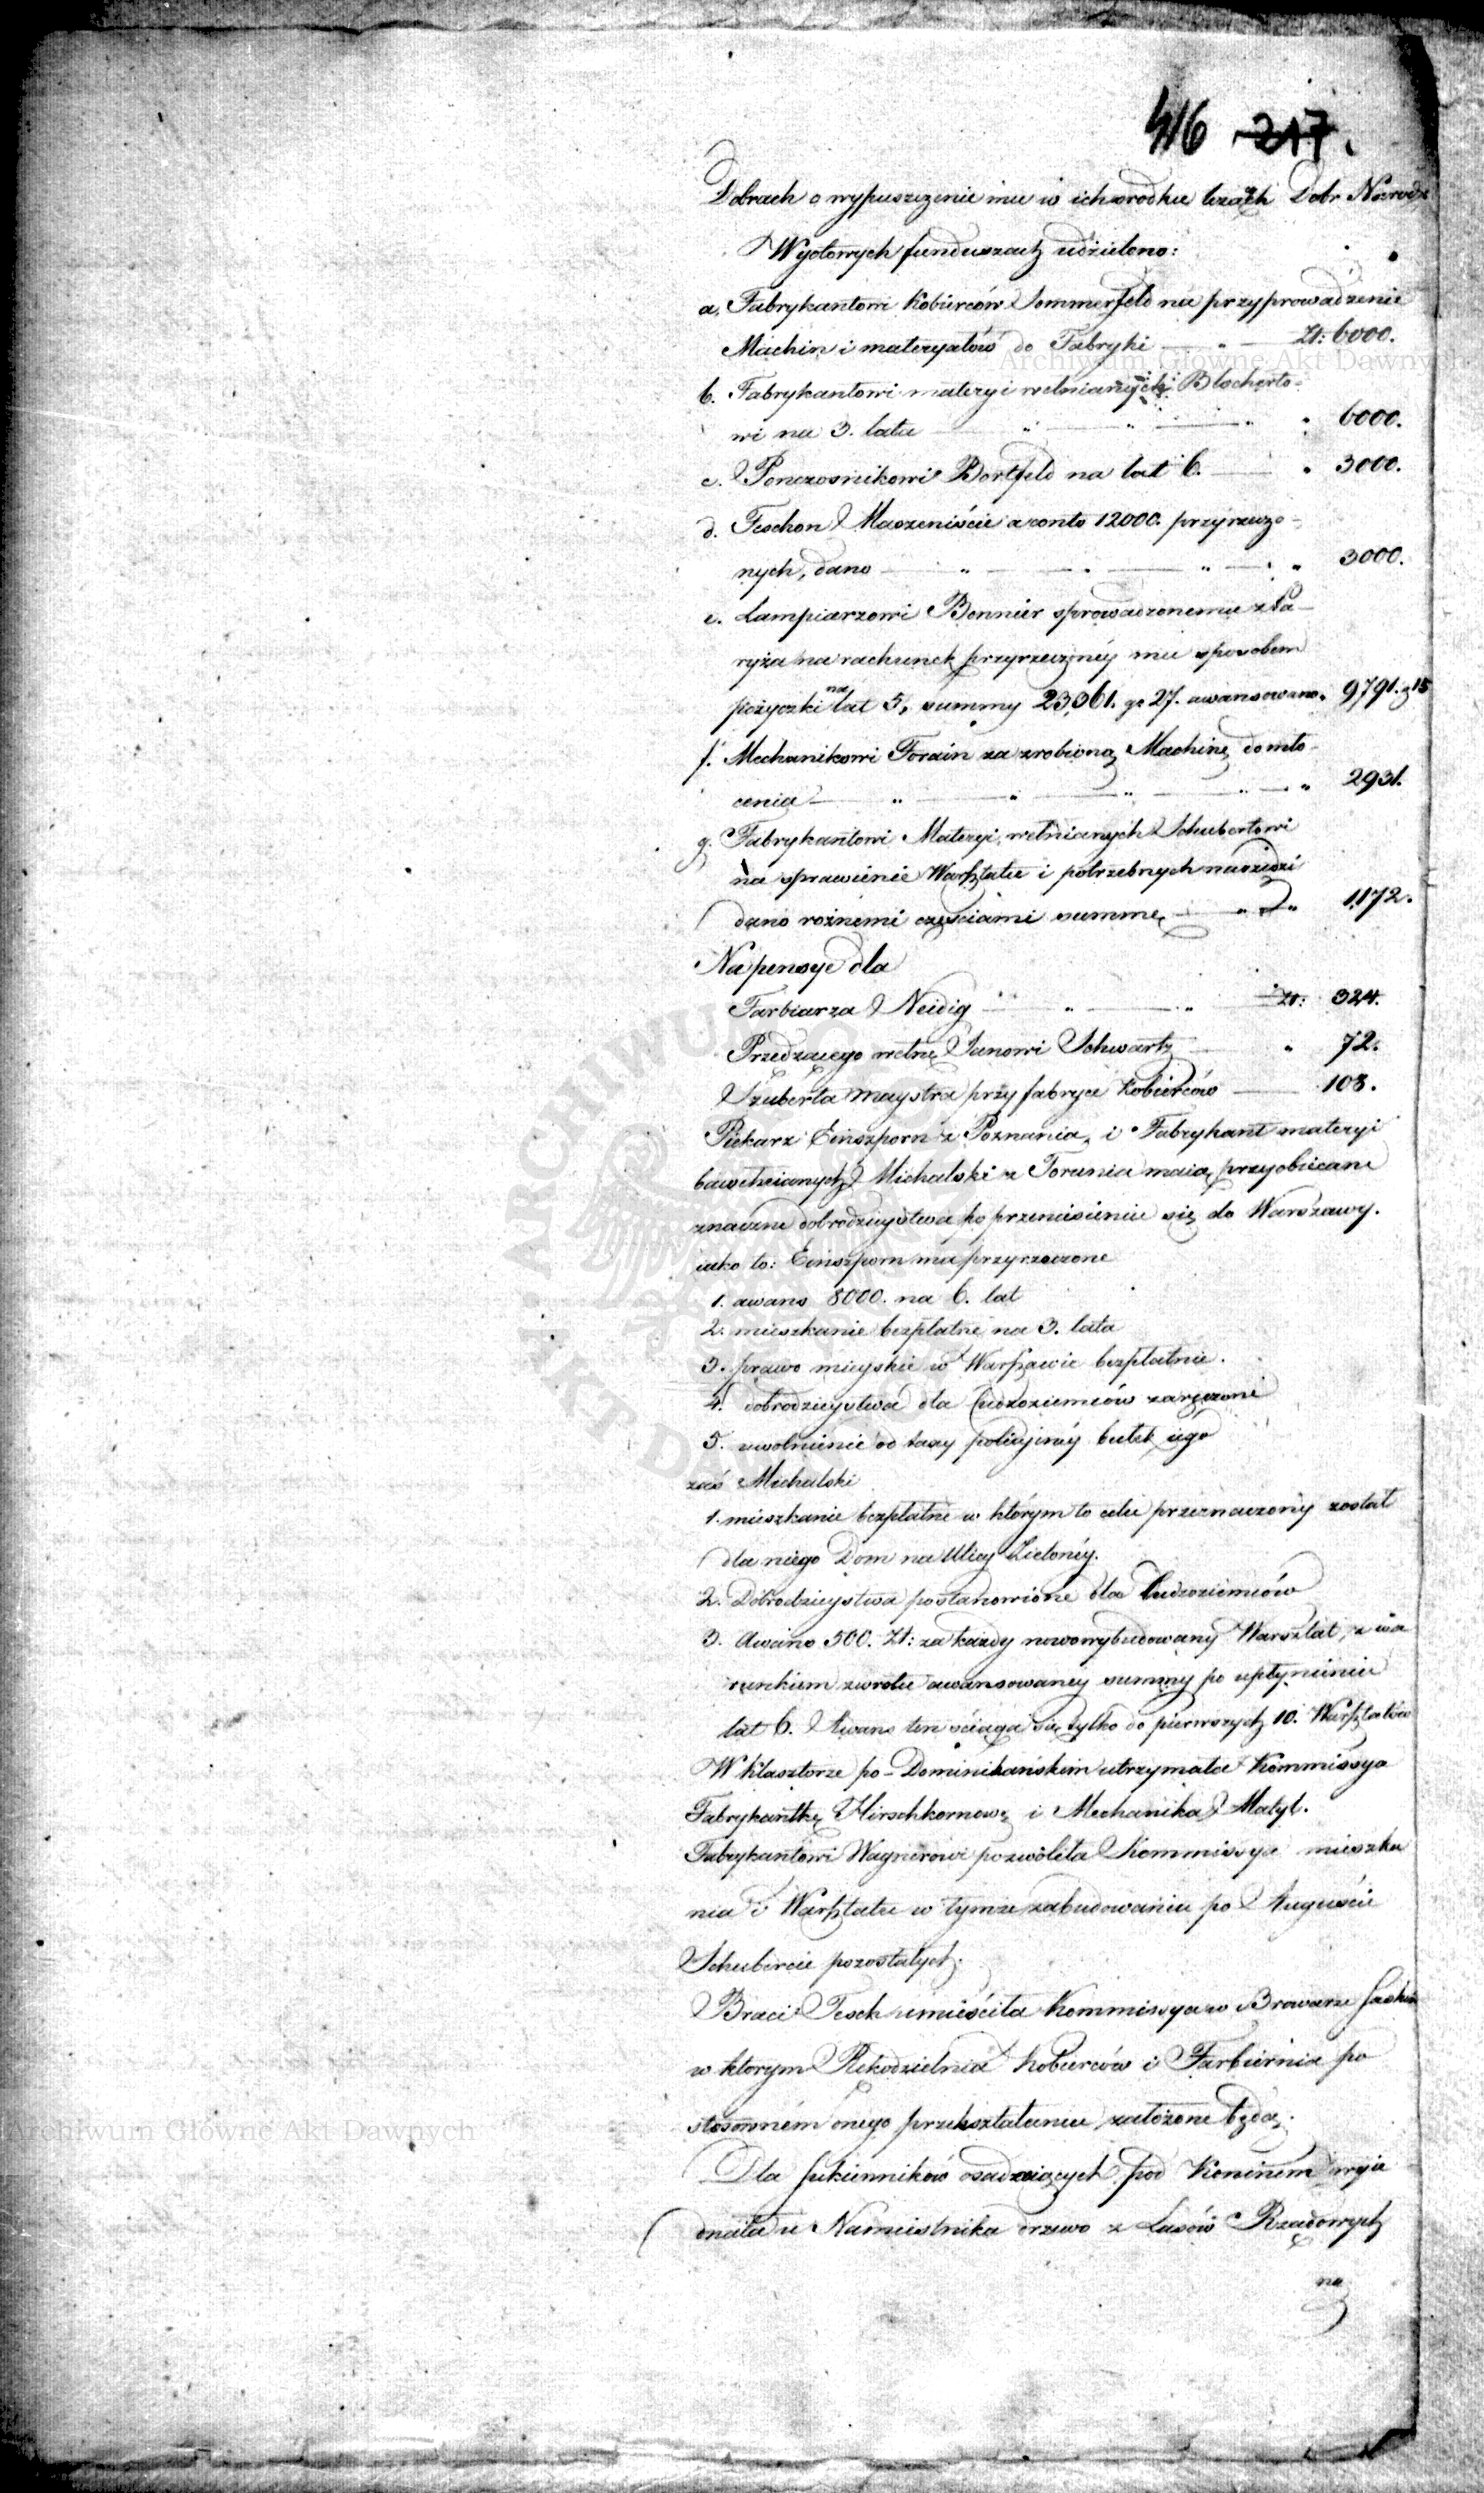 416 217.
Dobrach o wypuszczenie mu w ich srodku Dobr Narod
Wyetowych funduszach udzielono:
a. Fabrykantowi Kobierców Sommerfeld na przyprowadzenie
Machin i materyałów do Fabryki — " — Zł: 6000.
b. Fabrykantowi materyi wełnianych Blocherto-
wi na 3. lata — " — " — " 6000.
c. Ponczosnikowi Bortfeld na lat 6. — " 3000.
d. Teschon Maszeniście a conto 12000. przyrzeczo-
nych, dano — " — " — " — " 3000.
e. Lampiarzowi Bonnier sprowadzonemu z Pa-
ryża na rachunek przyrzeczonéy mu sposobem
pożyczki na lat 5, summy 23,361. gr 27. awansowano " 9,791. g 15
f. Mechanikowi Forain za zrobioną Machinę do mło-
cenia — " — " — " — " — " 2931.
g. Fabrykantowi Materyi wełnianych Schubertowi
na sprawienie Warsztatu i potrzebnych narzędzi
dano rożnemi częściami summę — " — " 1,172.
Na pensye dla
Farbiarza Neidig — " — " Zł: 324.
Przedzącego wełnę Janowi Schwartz — " 72.
Szuberta Maystra przy fabryce Kobierców — 108.
Piekarz Einszporn z Poznania, i Fabrykant materyi
bawełnianych Michalski z Torunia maią przyobiecane
znaczne dobrodzieystwa po przeniesieniu się do Warszawy.
iako to: Einszporn ma przyrzeczone
1. awans 8000. na 6. lat
2. mieszkanie bezpłatne na 3. lata
3. prawo mieyskie w Warszawie bezpłatnie.
4. dobrodzieystwa dla Cudzoziemców zaręczone
5. uwolnienie od taxy policyjnéy bułek iégo
zaś Michalski
1. mieszkanie bezpłatne w którym to celu przeznaczony został
dla niego Dom na Ulicy Zielonéy.
2. Dobrodzieystwa postanowione dla Cudzoziemców
3. Awans 500. Zł: za każdy nowowybudowany Warsztat, z wa
runkiem zwrotu awansowaney summy po upłynieniu
lat 6. Awans ten ściąga się tylko do pierwszych 10. Warsztatów
W Klasztorze po-Dominikańskim utrzymała Kommissya
Fabrykantkę Hirschkornowę i Mechanika Matyl.
Fabrykantowi Wagnerowi pozwoliła Kommissya mieszka
nia i Warsztatu w tymże zabudowaniu po Auguście
Schubercie pozostałych.
Braci Tesch umieściła Kommissya w Browarze Saskim
w ktorym Rękodzielnia Kobierców i Farbiernia po
stosowném onego przekształceniu założone będą.
Dla sukienników osadzaiących pod Koninem wyie
dnała u Namiestnika drzewo z Lasów Rządowych
na
Archiwum Główne Akt Dawnych
Archiwum Główne Akt Dawnych
ARCHIWUM
AKT DA